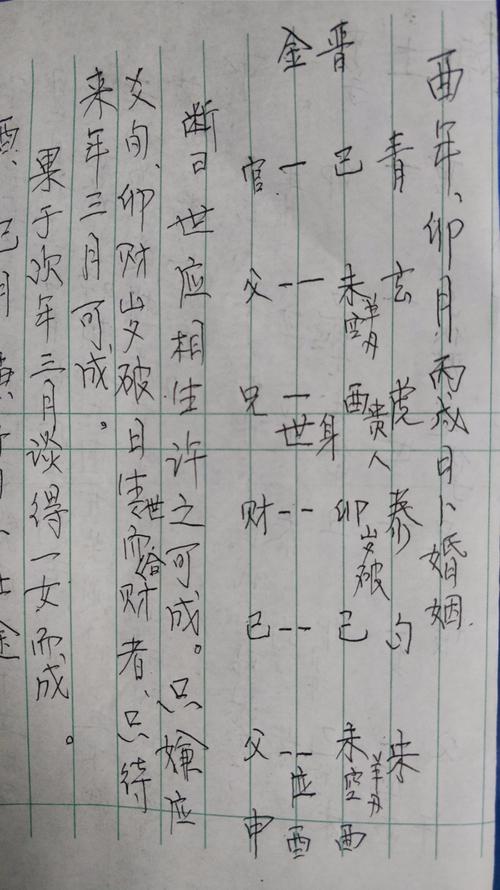 酉年、卯月、丙戌日卜婚姻.
青玄虎勾朱
晋巳未空羊刃酉贵人卯岁破巳未空羊刃酉
一--一世身------应酉
金官父兄财己父申
断曰世应相生许之可成。只嫌应
爻旬、卯财岁破日生世而合财者、只待
来年三月可成。
果于次年三月谈得一女而成。